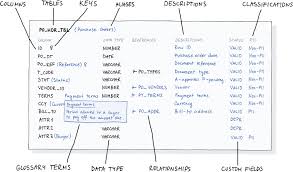 COLUMNS TABLES KEYS ALIASES DESCRIPTIONS CLASSIFICATIONS
PO_HDR_TBL (Purchase Orders)
COLUMN DATA TYPE REFERENCES DESCRIPTION STATUS PII
ID NUMBER Row ID VALID Non-PII
PO_DT DATE Purchase order date VALID Non-PII
PO_REF (Reference) VARCHAR Document Reference VALID Non-PII
T_CODE VARCHAR PO_TYPES Document type VALID Non-PII
STAT (Status) VARCHAR VALID Non-PII
VENDOR_ID NUMBER PO_VENDORS Vendor VALID Non-PII
TERMS Payment terms NUMBER PO_TERMS Payment terms VALID Non-PII
CCY Payment terms VARCHAR Currency VALID Non-PII
BILL_TO NUMBER PO_ADDR Bill-to address VALID Non-PII
to pay off the amount due
ATTR1 VARCHAR DEPR.
ATTR2 VARCHAR DEPR.
ATTR3 (Buyer) VARCHAR VALID PII
GLOSSARY TERMS DATA TYPE RELATIONSHIPS CUSTOM FIELDS